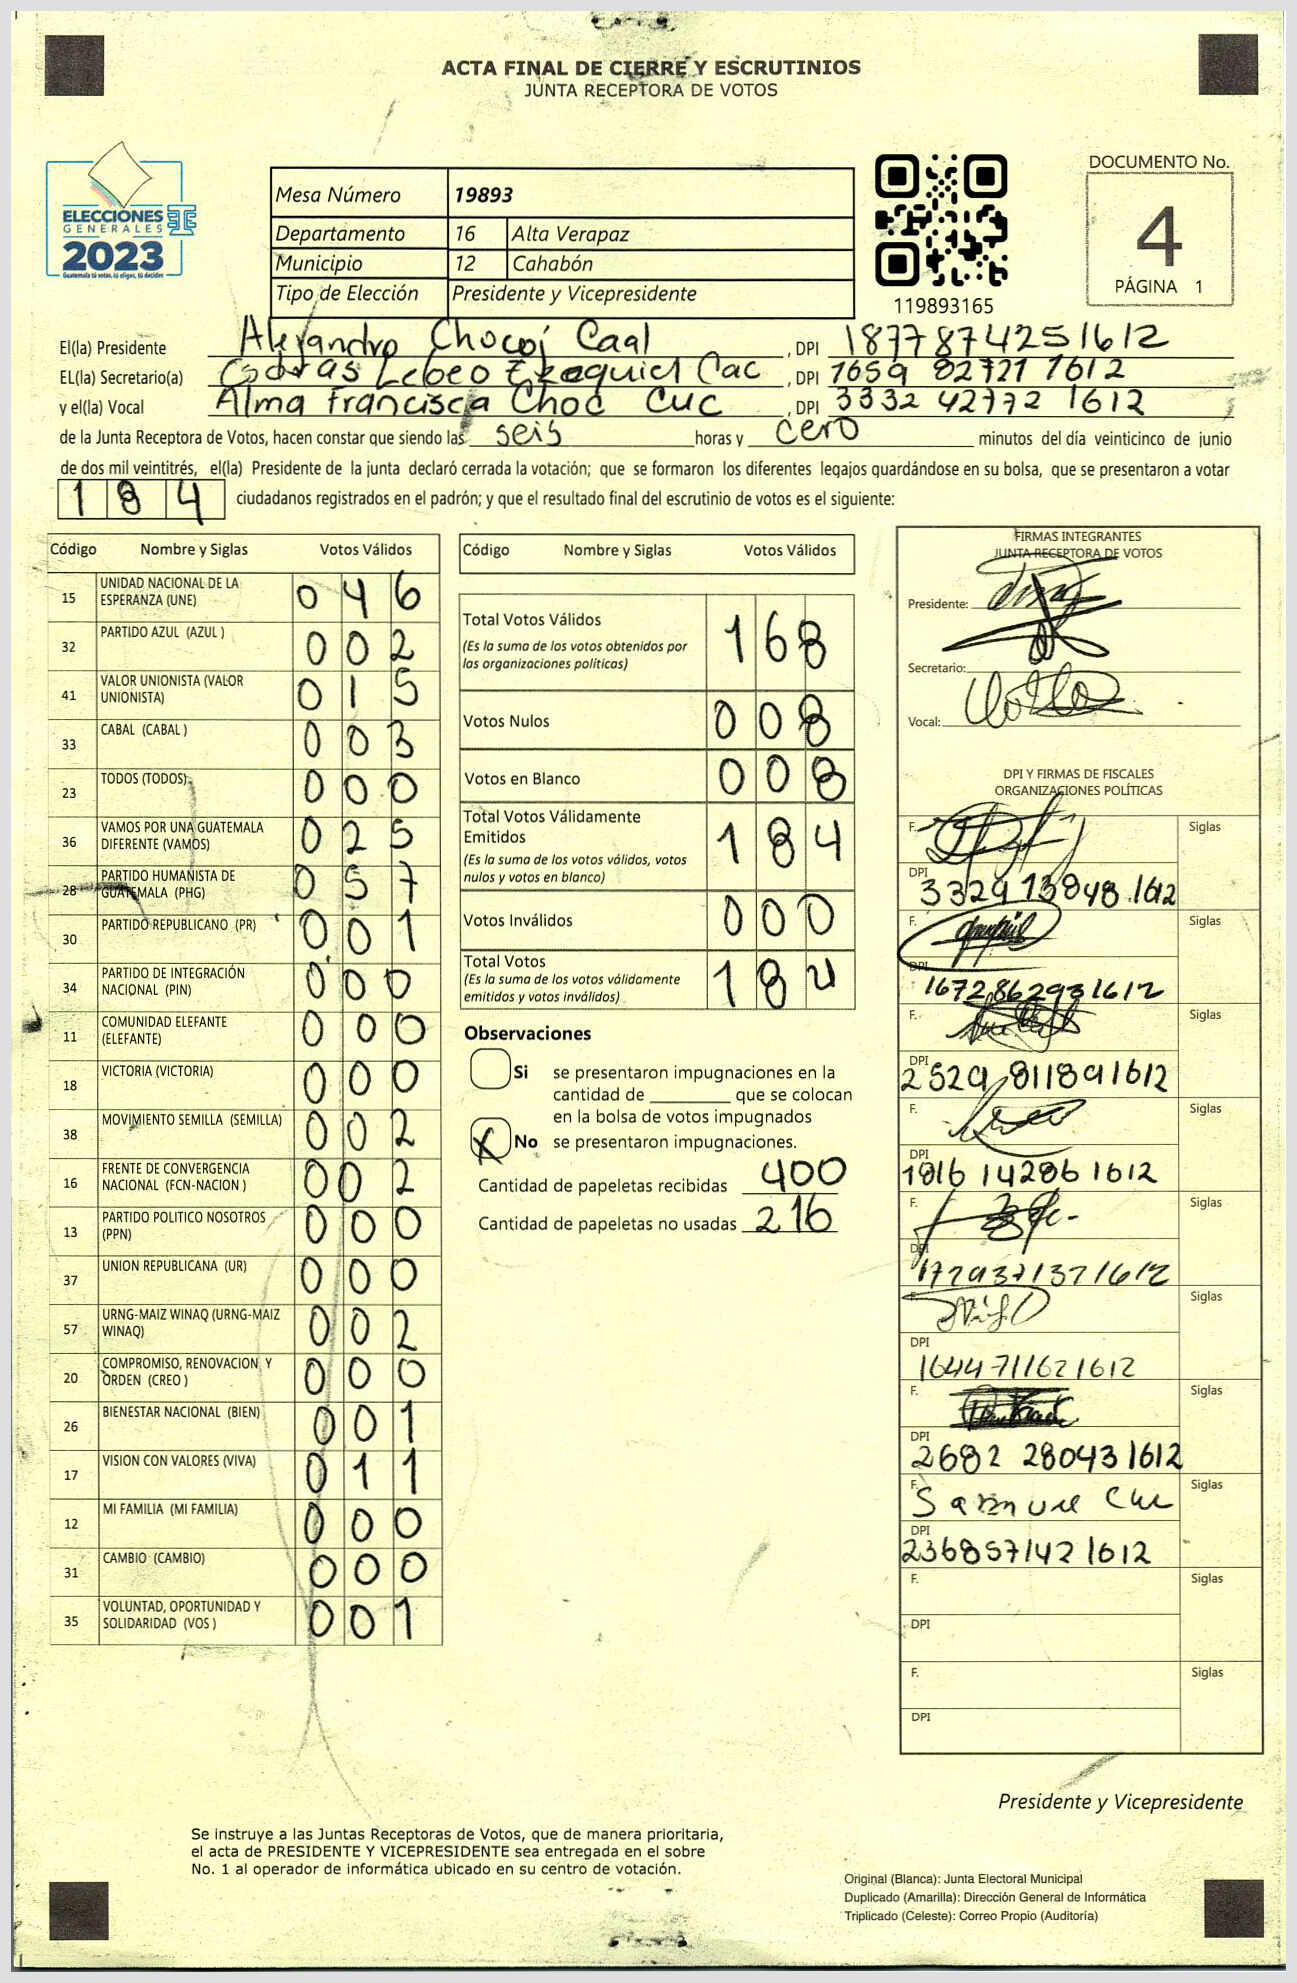 ACTA FINAL DE CIERRE Y ESCRUTINIOS
JUNTA RECEPTORA DE VOTOS
ELECCIONES
GENERALES
2023
Guatemala tú votas, tú eliges, tú decides
Mesa Número 19893
Departamento 16 Alta Verapaz
Municipio 12 Cahabón
Tipo de Elección Presidente y Vicepresidente
119893165
DOCUMENTO No.
4
PÁGINA 1
El(la) Presidente Alejandro Chocoj Caal , DPI 1877874251612
EL(la) Secretario(a) Ezequiel Cac , DPI 1659 82721 1612
y el(la) Vocal Alma Francisca Choc Cuc , DPI 3332 42772 1612
de la Junta Receptora de Votos, hacen constar que siendo las seis horas y cero minutos del día veinticinco de junio
de dos mil veintitrés, el(la) Presidente de la junta declaró cerrada la votación; que se formaron los diferentes legajos guardándose en su bolsa, que se presentaron a votar
184 ciudadanos registrados en el padrón; y que el resultado final del escrutinio de votos es el siguiente:
Código Nombre y Siglas Votos Válidos
15 UNIDAD NACIONAL DE LA ESPERANZA (UNE) 046
32 PARTIDO AZUL (AZUL ) 002
41 VALOR UNIONISTA (VALOR UNIONISTA) 015
33 CABAL (CABAL ) 003
23 TODOS (TODOS) 000
36 VAMOS POR UNA GUATEMALA DIFERENTE (VAMOS) 025
28 PARTIDO HUMANISTA DE GUATEMALA (PHG) 057
30 PARTIDO REPUBLICANO (PR) 001
34 PARTIDO DE INTEGRACIÓN NACIONAL (PIN) 000
11 COMUNIDAD ELEFANTE (ELEFANTE) 000
18 VICTORIA (VICTORIA) 000
38 MOVIMIENTO SEMILLA (SEMILLA) 002
16 FRENTE DE CONVERGENCIA NACIONAL (FCN-NACION ) 002
13 PARTIDO POLITICO NOSOTROS (PPN) 000
37 UNION REPUBLICANA (UR) 000
57 URNG-MAIZ WINAQ (URNG-MAIZ WINAQ) 002
20 COMPROMISO, RENOVACION Y ORDEN (CREO ) 000
26 BIENESTAR NACIONAL (BIEN) 001
17 VISION CON VALORES (VIVA) 011
12 MI FAMILIA (MI FAMILIA) 000
31 CAMBIO (CAMBIO) 000
35 VOLUNTAD, OPORTUNIDAD Y SOLIDARIDAD (VOS ) 001
Código Nombre y Siglas Votos Válidos
Total Votos Válidos 168
(Es la suma de los votos obtenidos por
las organizaciones políticas)
Votos Nulos 008
Votos en Blanco 008
Total Votos Válidamente
Emitidos 184
(Es la suma de los votos válidos, votos
nulos y votos en blanco)
Votos Inválidos 000
Total Votos 184
(Es la suma de los votos válidamente
emitidos y votos inválidos)
Observaciones
Si se presentaron impugnaciones en la
cantidad de ________ que se colocan
en la bolsa de votos impugnados
X No se presentaron impugnaciones.
Cantidad de papeletas recibidas 400
Cantidad de papeletas no usadas 216
FIRMAS INTEGRANTES
JUNTA RECEPTORA DE VOTOS
Presidente:
Secretario:
Vocal:
DPI Y FIRMAS DE FISCALES
ORGANIZACIONES POLÍTICAS
F. Siglas
DPI 3329 13848 1612
F. Siglas
DPI 1672862931612
F. Siglas
DPI 2529 811891612
F. Siglas
DPI 1816 14286 1612
F. Siglas
DPI 1779371371612
F. Siglas
DPI 1644711621612
F. Siglas
DPI 2682 28043 1612
F. Siglas
DPI 2368571421612
F. Siglas
DPI
F. Siglas
DPI
Presidente y Vicepresidente
Se instruye a las Juntas Receptoras de Votos, que de manera prioritaria,
el acta de PRESIDENTE Y VICEPRESIDENTE sea entregada en el sobre
No. 1 al operador de informática ubicado en su centro de votación.
Original (Blanca): Junta Electoral Municipal
Duplicado (Amarilla): Dirección General de Informática
Triplicado (Celeste): Correo Propio (Auditoría)